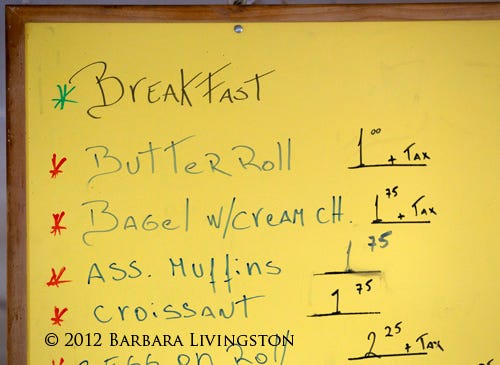 * BREAKFAST
* BUTTER ROLL 1 00 + TAX
* BAGEL W/CREAM CH. 1 75 + TAX
* ASS. MUFFINS 1 75
* CROISSANT 1 75
© 2012 BARBARA LIVINGSTON
EGG ON ROLL 2 25 + TAX